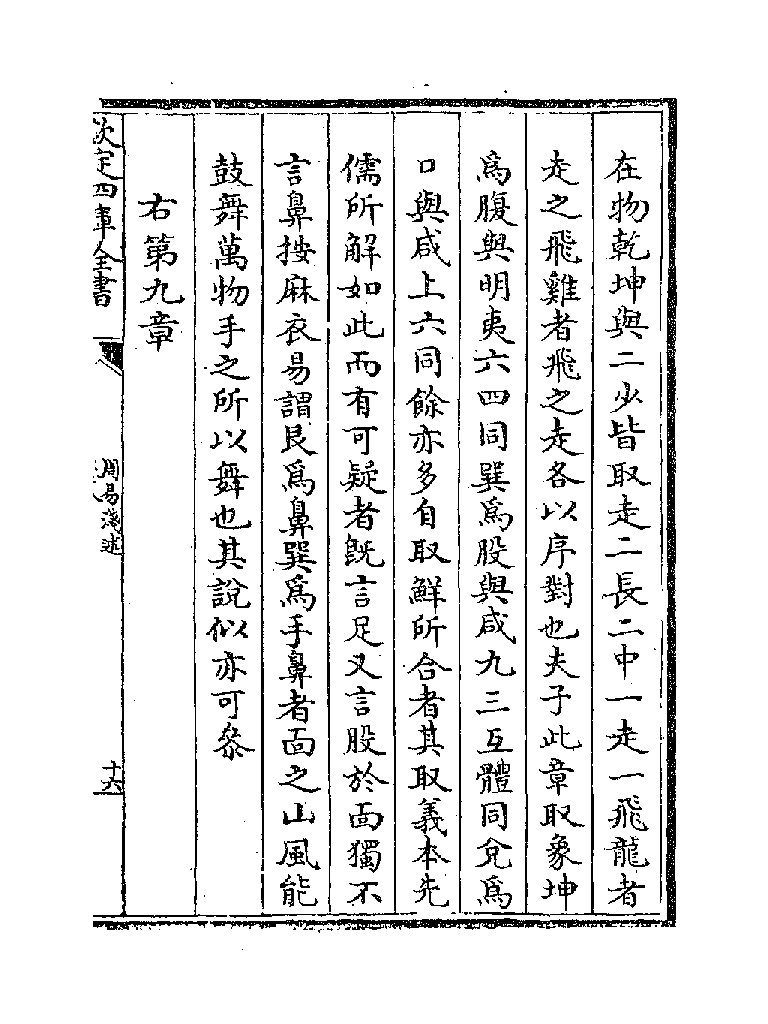 在物乾坤與二少皆取走二長二中一走一飛龍者
走之飛雞者飛之走各以序對也夫子此章取象坤
爲腹與明夷六四同巽爲股與咸九三互體同兊爲
口與咸上六同餘亦多自取鮮所合者其取義本先
儒所解如此而有可疑者旣言足又言股於面獨不
言鼻按麻衣易謂艮爲鼻巽爲手鼻者面之山風能
鼓舞萬物手之所以舞也其說似亦可叅
右第九章
欽定四庫全書
周易淺述
十六